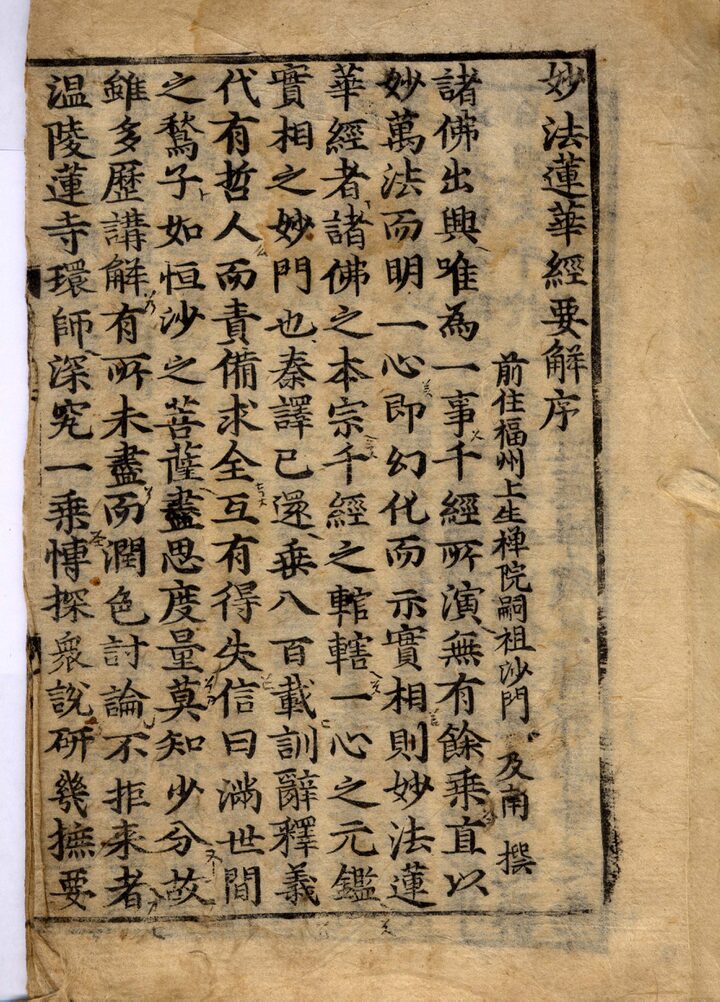 妙法蓮華經要解序
前住福州上生禅院嗣祖沙門 及南 撰
諸佛出興唯為一事千經所演無有餘乗直以
妙萬法而明一心即幻化而示實相則妙法蓮
華經者諸佛之本宗千經之轄轄一心之元鑑
實相之妙門也秦譯已還乗八百載訓辭釋義
代有哲人而責備求全互有得失信曰滿世間
之鶖子如恒沙之菩薩盡思度量莫知少分故
雖多歷講解有所未盡而潤色討論不拒来者
温陵蓮寺環師深究一乗愽探衆說研幾撫要